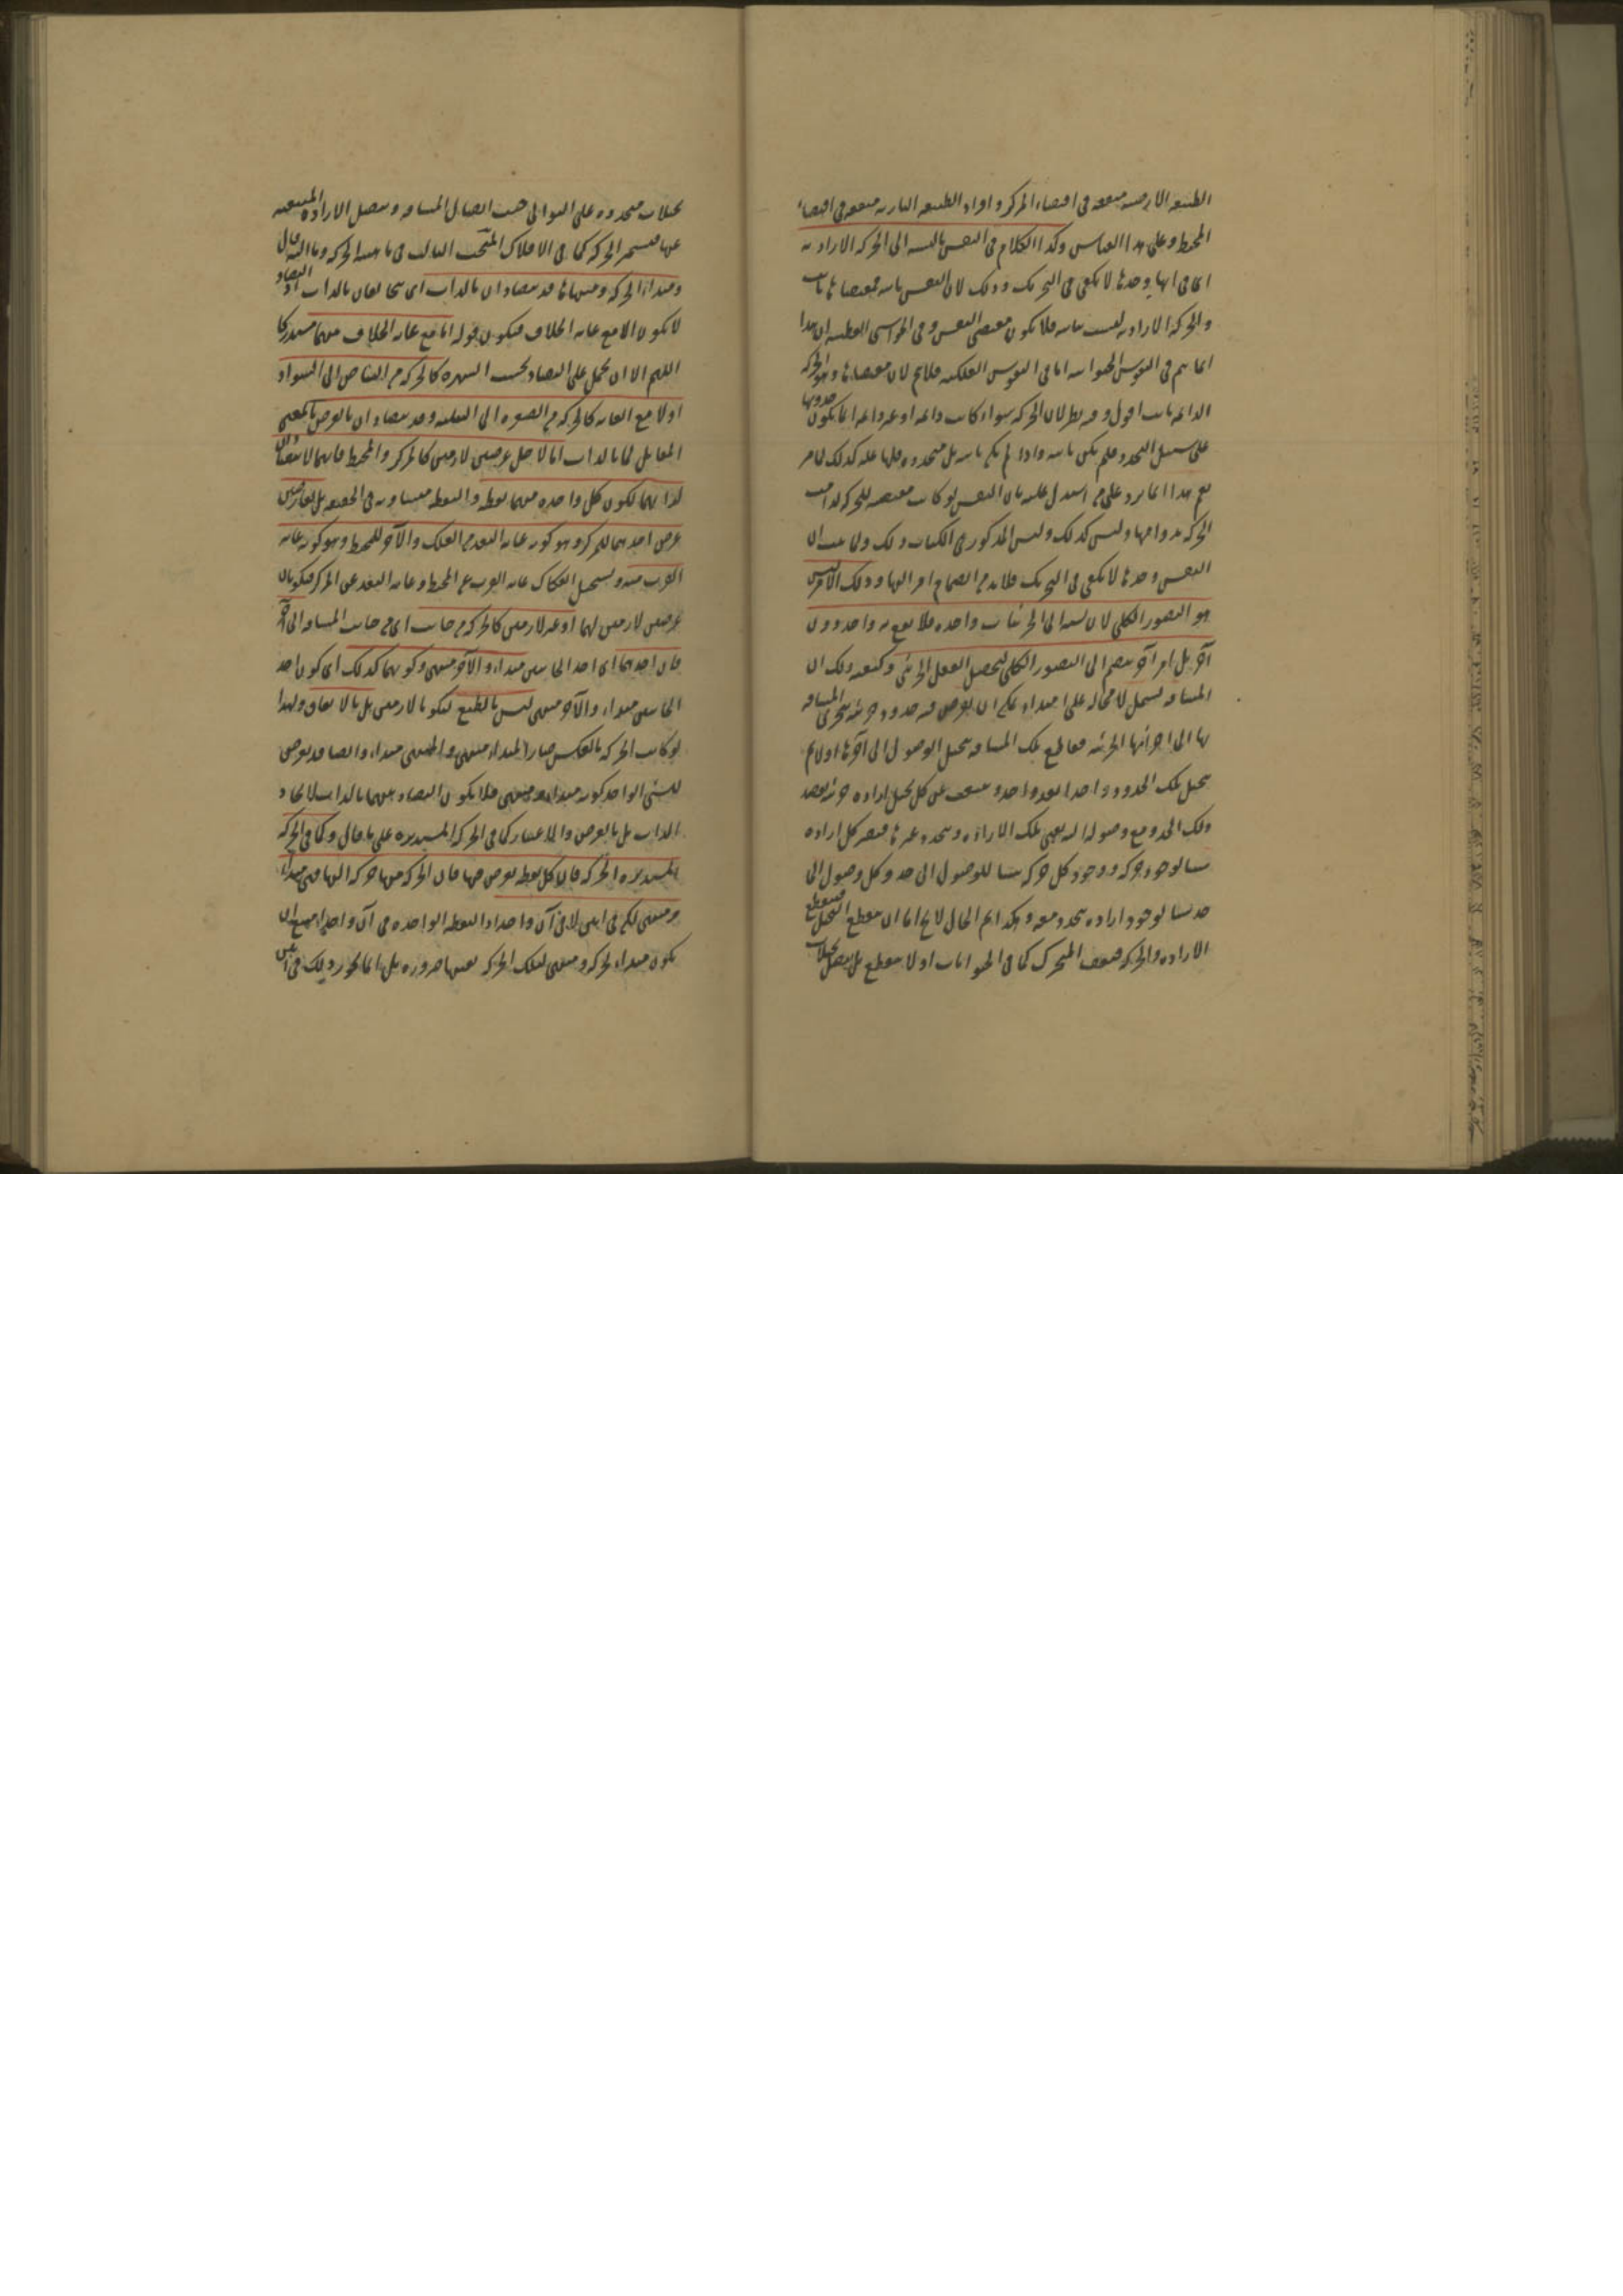 الطبيعة الارضية متفقة فى اقتضاء المركز وافراد الطبيعة النارية متفقة فى اقتضاء
المحيط وعلى هذا القياس وكذا الكلام فى النفس بالنسبة الى الحركة الارادية
اى فى انها وحدها لا تكفى فى التحريك وذلك لان النفس ثابتة فمقتضاها ثابت
والحركة الارادية ليست ثابتة فلا تكون مقتضى النفس وفى الحواشى القطبية ان هذا
انما يتم فى النفوس الحيوانية اما فى النفوس الفلكية فلا يتم لان مقتضاها وهو الحركة
الدائمة ثابت اقول وفيه نظر لان الحركة سواء كانت دائمة او غير دائمة انما يكون حدوثها
على سبيل التجدد فلم يكن ثابتة واذا لم يكن ثابتة بل متجددة فلها علة كذلك لما مر
نعم هذا انما يرد على من استدل عليه بان النفس لو كانت مقتضية للحركة لدامت
الحركة بدوامها وليس كذلك وليس المذكور فى الكتاب ذلك ولما ثبت ان
النفس وحدها لا تكفى فى التحريك فلا بد من انضمام امر اليها وذلك الامر ليس
هو التصور الكلى لان نسبته الى الجزئيات واحدة فلا يقع به واحد دون
آخر بل امر آخر ينضم الى التصور الكلى ليحصل الفعل الجزئى وكيفية ذلك ان
المسافة تشتمل لا محالة على امتداد يمكن ان يفرض فيه حدود جزئية تتجزى المسافة
بها الى اجزائها الجزئية فقاطع تلك المسافة يتخيل الوصول الى آخرها اولا ثم
يتخيل تلك الحدود واحدا بعد واحد وينبعث عن كل تخيل ارادة جزئية بقصد
ذلك الحد ومع وصوله اليه يفنى تلك الارادة ويتجدد غيرها فيصير كل ارادة
سببا لوجود حركة ووجود كل حركة سببا للوصول الى حد وكل وصول الى
حد سببا لوجود ارادة يتجدد معه وهكذا ثم الحال لا يخ اما ان ينقطع التخيل فينقطع
الارادة والحركة فيقف المتحرك كما فى الحيوانات او لا ينقطع بل يتصل تخيلات
تخيلات متجددة على التوالى حسب اتصال المسافة ويتصل الارادة المنبعثة
عنها فيستمر الحركة كما فى الافلاك المبحث الثالث فى ما منه الحركة وما اليه قال
ومبدأ الحركة ومنتهاها قد يتضادان بالذات اى يتخالفان بالذات اذ التضاد
لا يكون الا مع غاية الخلاف فيكون قوله اما مع غاية الخلاف منهما مستدركا
اللهم الا ان يحمل على التضاد بحسب الشهرة كالحركة من البياض الى السواد
اولا مع الغاية كالحركة من الصفرة الى النيلية وقد يتضادان بالعرض بالمعنى
المقابل لما بالذات اما لاجل عرضين لازمين كالمركز والمحيط فانهما لا يتضادان
لذاتهما لكون كل واحدة منهما نقطة والنقطة متساوية فى الحقيقة بل لعارضين
عرض احدهما للمركز وهو كونه غاية البعد من الفلك والآخر للمحيط وهو كونه غاية
القرب منه ويستحيل انفكاك غاية القرب عن المحيط وغاية البعد عن المركز فيكونان
عرضين لازمين لهما او غير لازمين كالحركة من جانب اى من جانب المسافة الى آخر
فان احدهما اى احد الجانبين مبداء والآخر منتهى وكونهما كذلك اى كون احد
الجانبين مبداء والآخر منتهى ليس بالطبع ليكونا لازمين بل بالاتفاق ولهذا
لو كانت الحركة بالعكس صار المبداء منتهى والمنتهى مبداء وايضا قد يعرض
للشئ الواحد كونه مبداء ومنتهى فلا يكون التضاد بينهما بالذات لاتحاد
الذات بل بالعرض والاعتبار كما فى الحركة المستديرة على ما قال وكما فى الحركة
المستديرة الحركة فان كل نقطة يفرض فيها فان الحركة منها حركة اليها فهى مبداء
ومنتهى لكن فى آنين لا فى آن واحد اذ النقطة الواحدة فى آن واحد يمتنع ان
يكون مبداء لحركة ومنتهى لتلك الحركة بعينها ضرورة بل انما يجوز ذلك فى آنين